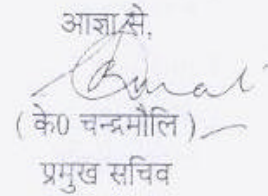 आज्ञा से,
( के0 चन्द्रमौलि )
प्रमुख सचिव